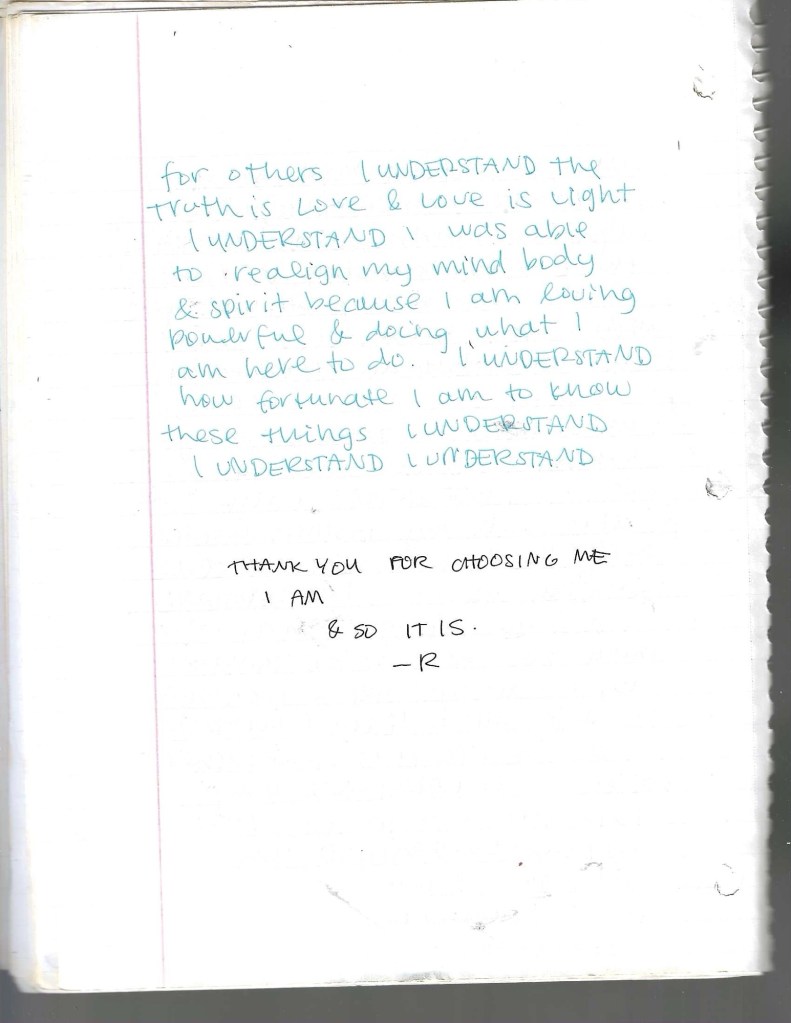 for others I UNDERSTAND the
truth is Love & Love is Light
I UNDERSTAND I was able
to realign my mind body
& spirit because I am loving
powerful & doing what I
am here to do. I UNDERSTAND
how fortunate I am to know
these things I UNDERSTAND
I UNDERSTAND I UNDERSTAND
THANK YOU FOR CHOOSING ME
I AM
& SO IT IS.
—R